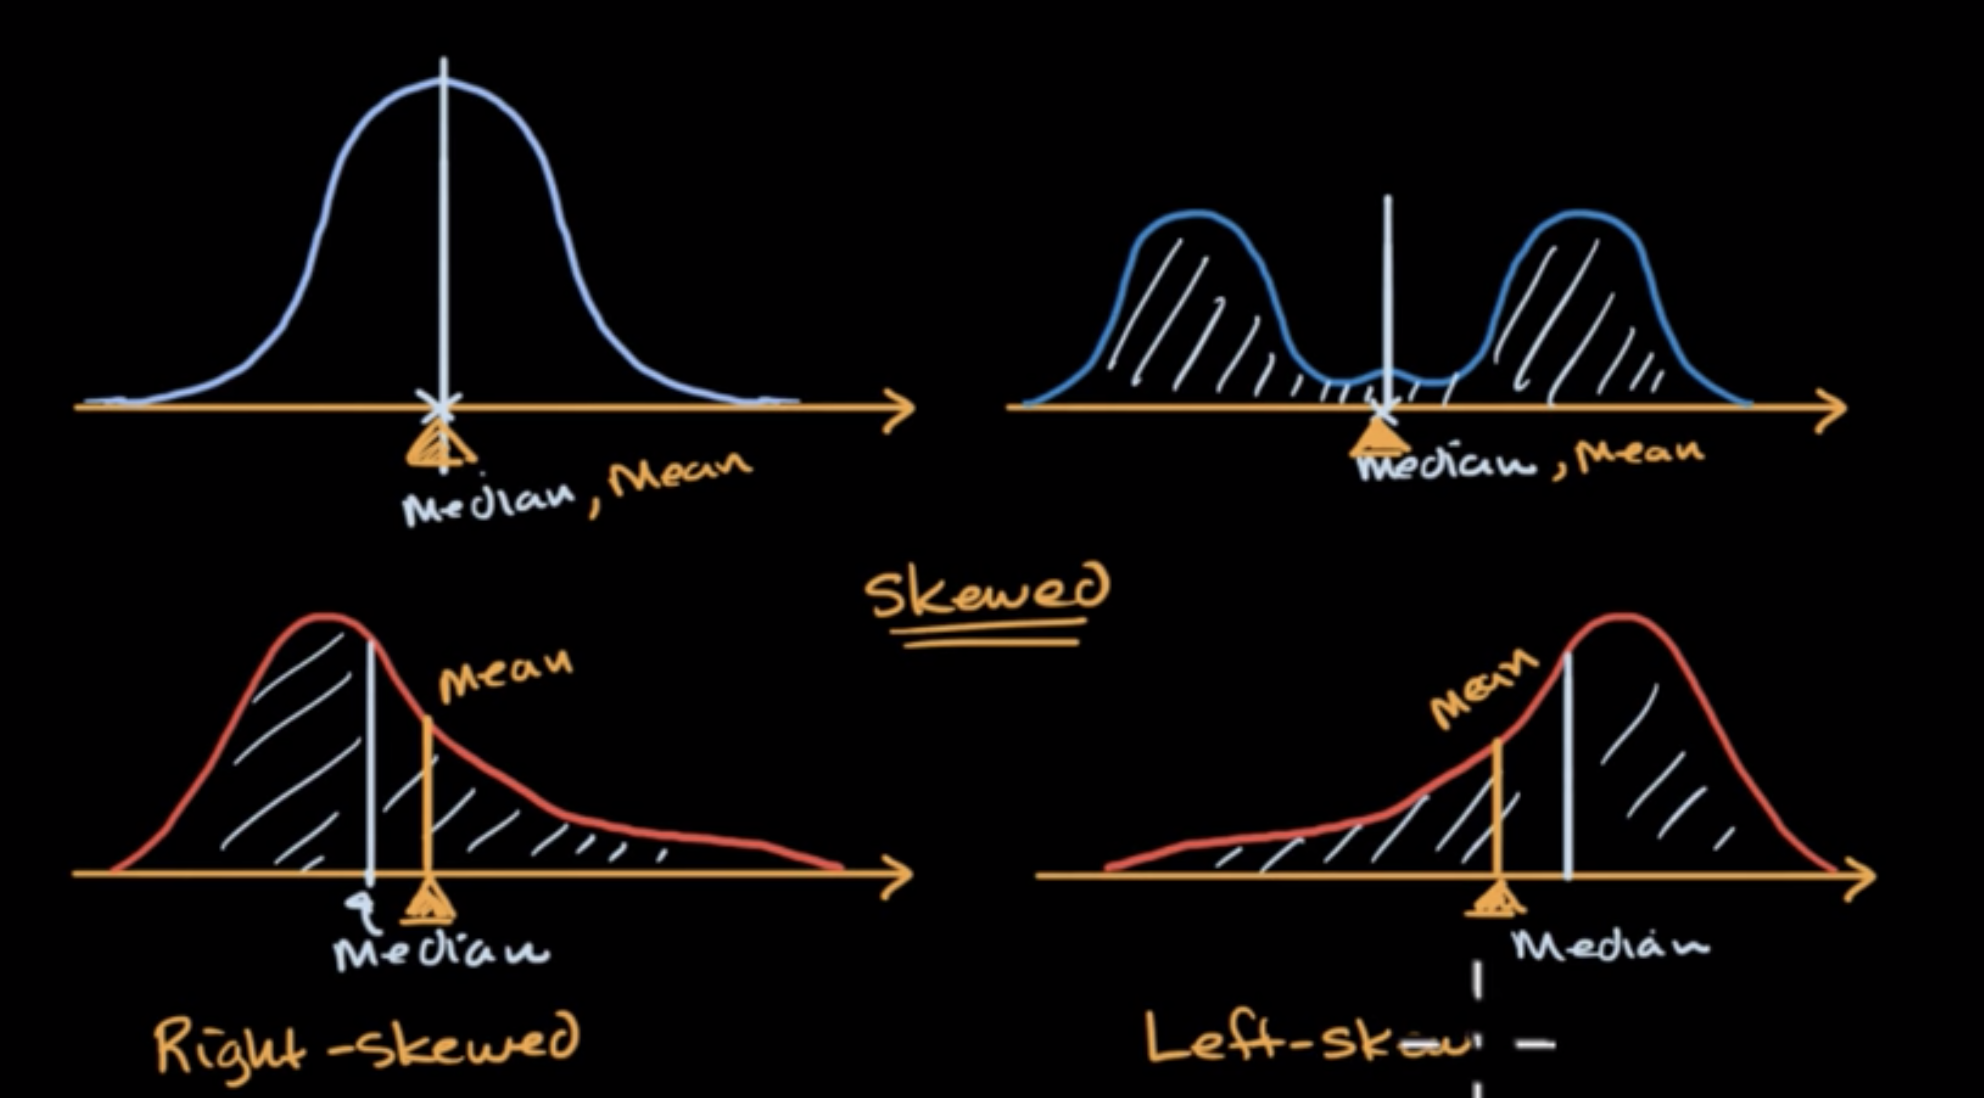 Median, Mean
Median, Mean
Skewed
Mean
Median
Right-skewed
Mean
Median
Left-skew